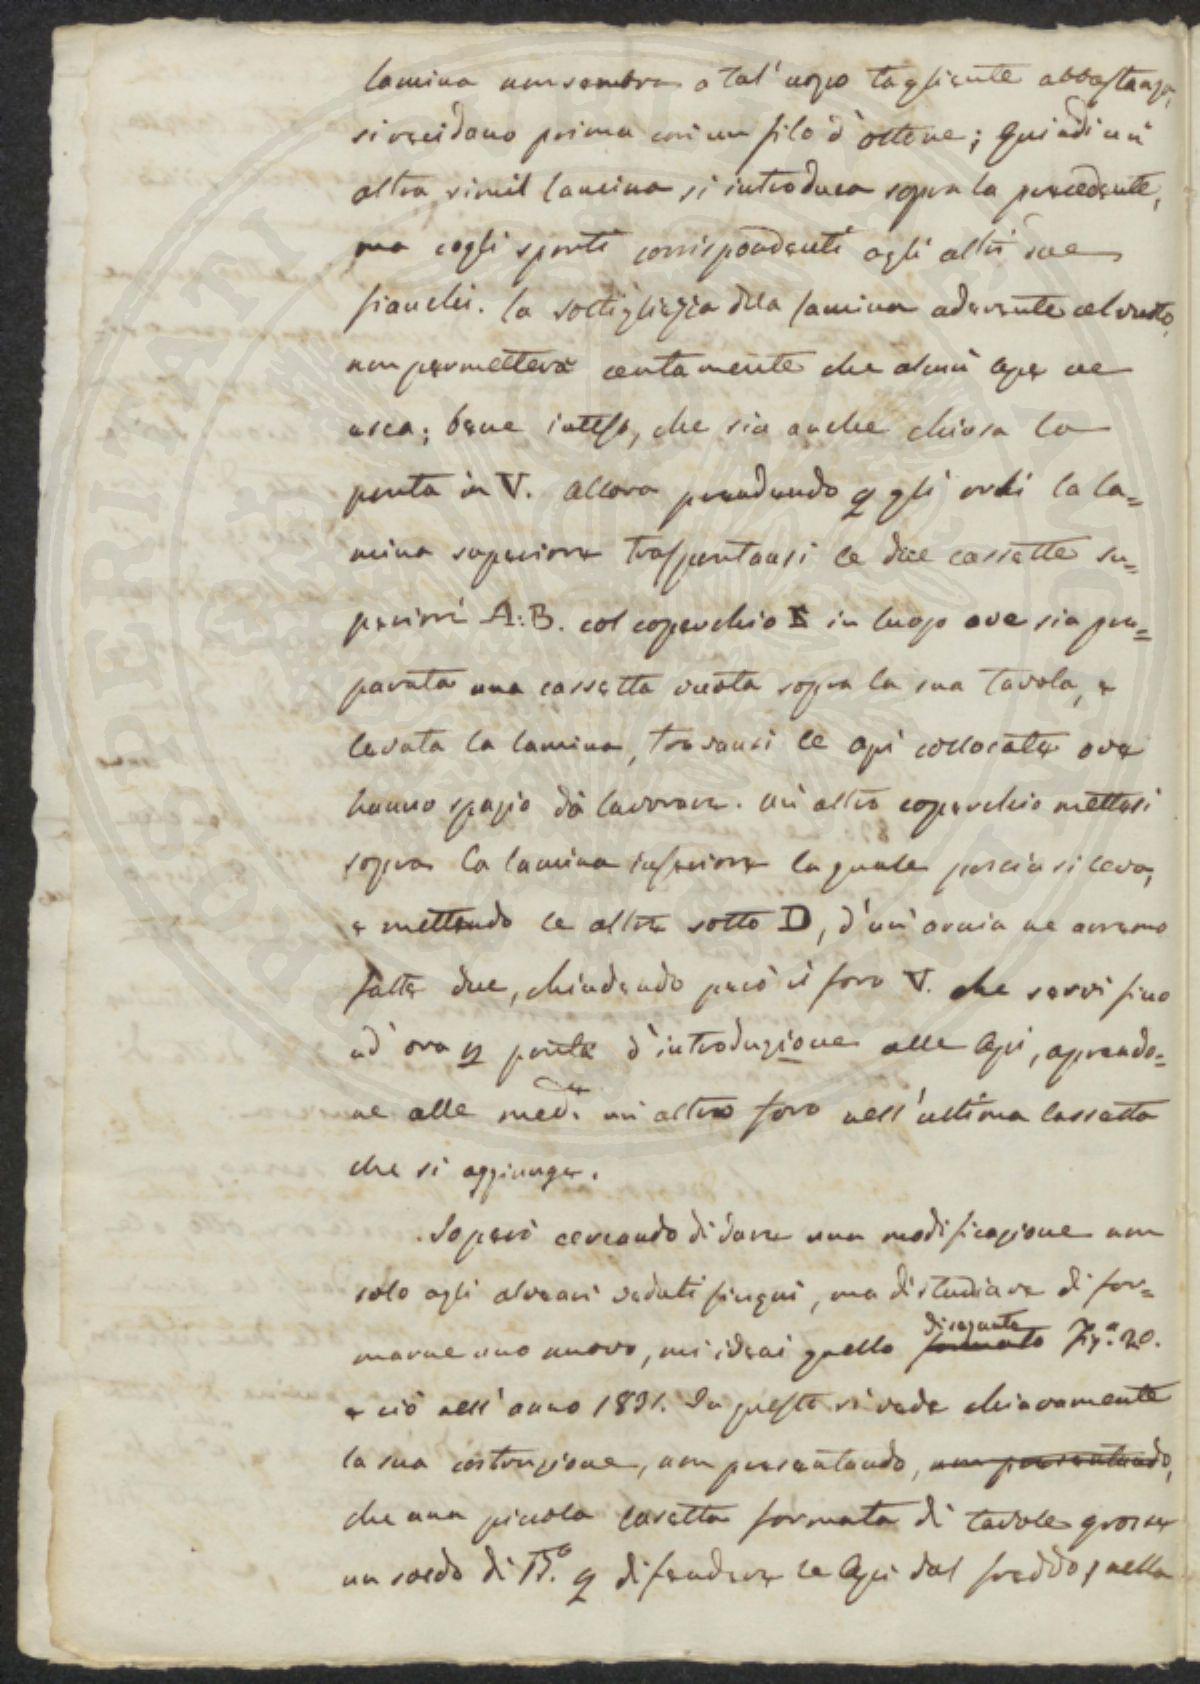 lamina non sembra a tal' uopo tagliente abbastanza,
si recidano prima con un filo d'ottone; quindi un'
altra simil lamina si introduca sopra la precedente,
ma cogli sporti corrispondenti agli altri due
fianchi. la sottigliezza della lamina aderente al vuoto,
non permetterà certamente che alcun ape ne
esca; bene inteso, che sia anche chiusa la
porta in V. Allora prendendo p gli orli la la=
mina superiore trasportansi le due cassette su=
periori A: B. col coperchio E in luogo ove sia pre=
parata una cassetta vuota sopra la sua tavola, e
levata la lamina, trovansi le api collocate ove
hanno spazio da lavorare. Un altro coperchio mettasi
sopra la lamina inferiore la quale poscia si leva,
e mettendo le altre sotto D, d'un' arnia ne avremo
fatte due, chiudendo però il foro V. che servì fino
ad' ora p porta d'introduzione alle Api, aprendo=
ne alle med.e un altro foro nell'ultima cassetta
che si aggiunge.
Io però cercando di dare una modificazione non
solo agli alveari veduti finqui, ma di studiare di for=
marne uno nuovo, mi ideai quello formato disegnato Fig.a 20.
e ciò nell' anno 1831. In questo si vede chiaramente
la sua costruzione, non presentando, non presentando,
che una piccola casetta formata di tavole grosse
un soldo di B.o p difendere le Api dal freddo, nella